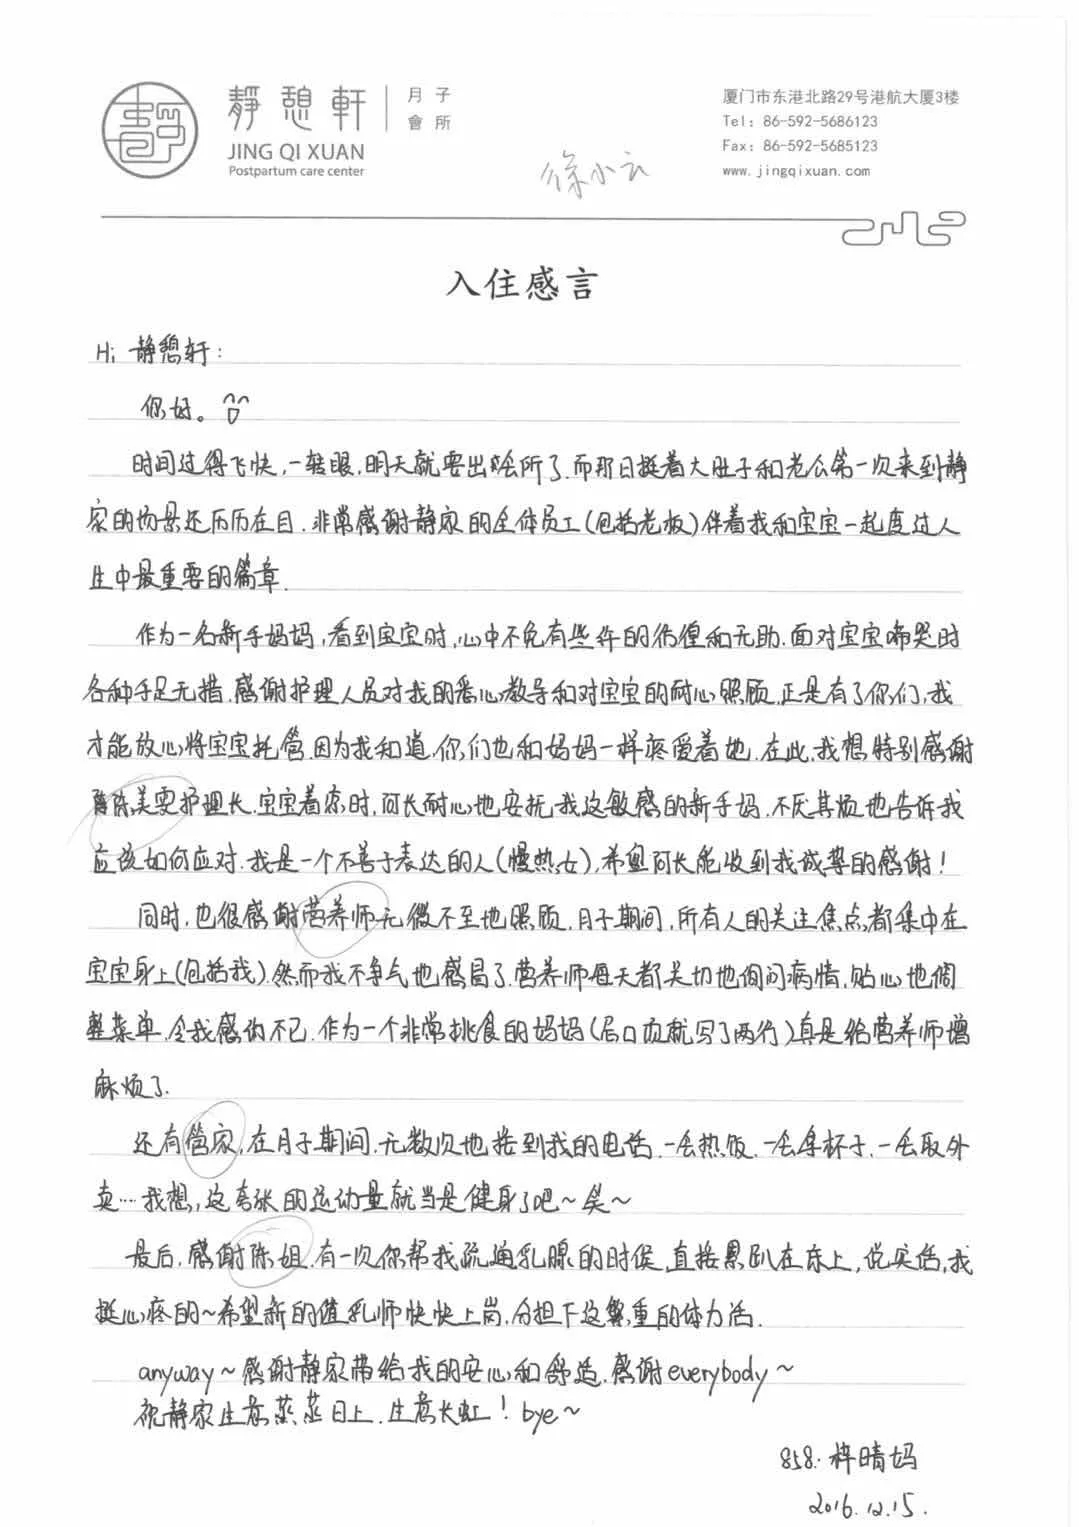 靜憩軒 月子
會所
JING QI XUAN
Postpartum care center
厦门市东港北路29号港航大厦3楼
Tel: 86-592-5686123
Fax: 86-592-5685123
www.jingqixuan.com
徐小云
入住感言
Hi 静憩轩:
你好。
时间过得飞快,一转眼,明天就要出会所了.而那日挺着大肚子和老公第一次来到静
家的场景还历历在目.非常感谢静家的全体员工(包括老板)伴着我和宝宝一起度过人
生中最重要的篇章.
作为一名新手妈妈,看到宝宝时,心中不免有些许的彷徨和无助.面对宝宝啼哭时
各种手足无措.感谢护理人员对我的悉心教导和对宝宝的耐心照顾.正是有了你们,我
才能放心将宝宝托管.因为我知道,你们也和妈妈一样疼爱着她.在此,我想特别感谢
陈美雯护理长.宝宝着凉时,阿长耐心地安抚我这敏感的新手妈.不厌其烦地告诉我
应该如何应对.我是一个不善于表达的人(慢热女),希望阿长能收到我诚挚的感谢!
同时,也很感谢营养师无微不至地照顾.月子期间,所有人的关注焦点都集中在
宝宝身上(包括我).然而我不争气地感冒了.营养师每天都关切地询问病情,贴心地调
整菜单.令我感动不已.作为一个非常挑食的妈妈(忌口页就写了两行)真是给营养师增
麻烦了.
还有管家,在月子期间,无数次地接到我的电话.一会热饭.一会拿杯子.一会取外
卖….我想,这夸张的运动量就当是健身了吧~笑~
最后,感谢陈姐.有一次你帮我疏通乳腺的时候,直接累趴在床上,说实话,我
挺心疼的~希望新的值乳师快快上岗.分担下这繁重的体力活.
anyway~感谢静家带给我的安心和舒适.感谢everybody~
祝静家生意蒸蒸日上.生意长虹!bye~
858.梓晴妈
2016.12.15.